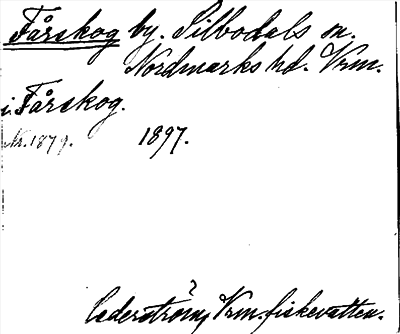 Fårskog by. Silbodals sn.
Nordmarks hd. Vrm.
i Fårskog.
Nr. 1879. 1897.
?
Cederström, Vrm. fiskevatten.